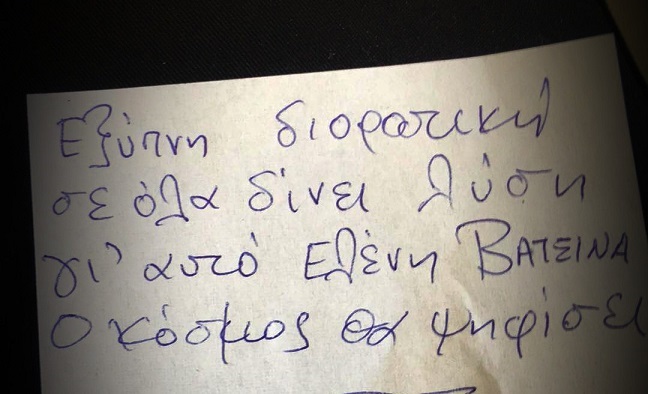 Εξύπνη διορατική
σε όλα δίνει λύση
γι' αυτό Ελένη ΒΑΤΣΙΝΑ
Ο κόσμος θα ψηφίσει